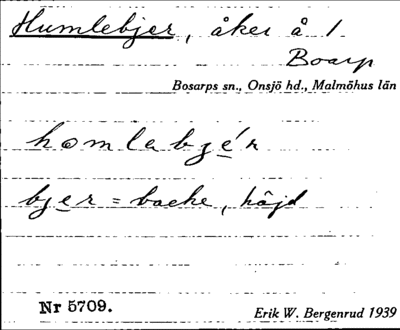 Humlebjer, åker å 1
Bosarp
Bosarps sn., Onsjö hd., Malmöhus län
homlabjér
bjer = backe, höjd
Nr 5709.
Erik W. Bergenrud 1939